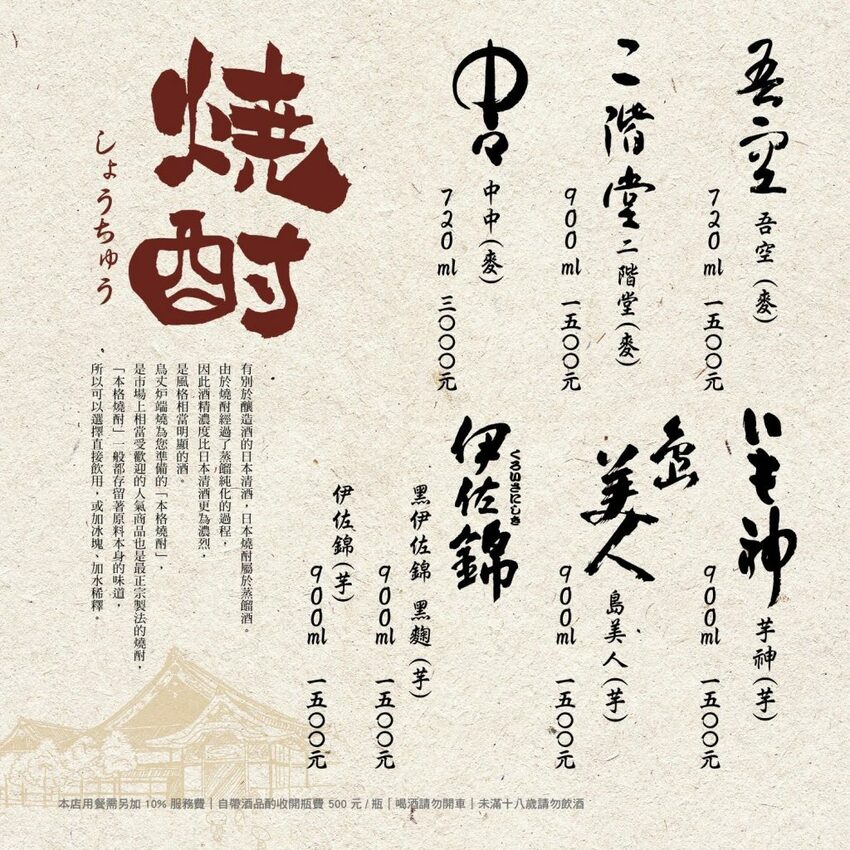 吾空
吾空(麥)
720ml 一五〇〇元
二階堂
二階堂(麥)
900ml 一五〇〇元
中々
中中(麥)
720ml 三〇〇〇元
燒酎
しょうちゅう
いも神
芋神(芋)
900ml 一五〇〇元
島美人
島美人(芋)
900ml 一五〇〇元
くろいさにしき
伊佐錦
黑伊佐錦 黑麴(芋)
900ml 一五〇〇元
伊佐錦(芋)
900ml 一五〇〇元
有別於釀造酒的日本清酒，日本燒酎屬於蒸餾酒。
由於燒酎經過了蒸餾純化的過程，
因此酒精濃度比日本清酒更為濃烈，
是風格相當明顯的酒。
鳥丈炉端燒為您準備的「本格燒酎」，
是市場上相當受歡迎的人氣商品也是最正宗製法的燒酎，
「本格燒酎」一般都存留著原料本身的味道，
所以可以選擇直接飲用，或加冰塊、加水稀釋。
本店用餐需另加 10% 服務費｜自帶酒品酌收開瓶費 500 元 / 瓶｜喝酒請勿開車｜未滿十八歲請勿飲酒